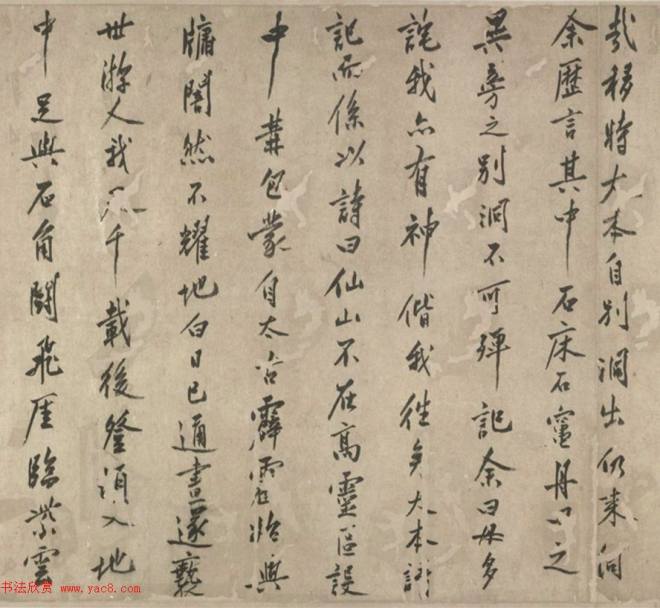 哉移時大本自別洞出仍來向
余歷言其中石床石竈丹臼之
異旁之別洞不可殫記余曰毋多
詫我亦有神偕我往矣大本謝
記而係以詩曰仙山不在高靈區設
中冓包蒙自太古霹靂始興
牖闇然不耀地白日已通晝遂褻
世游人我亦千載後登頂入地
中足與石角鬪飛厓臨紫雲
书法欣赏 www.yac8.com